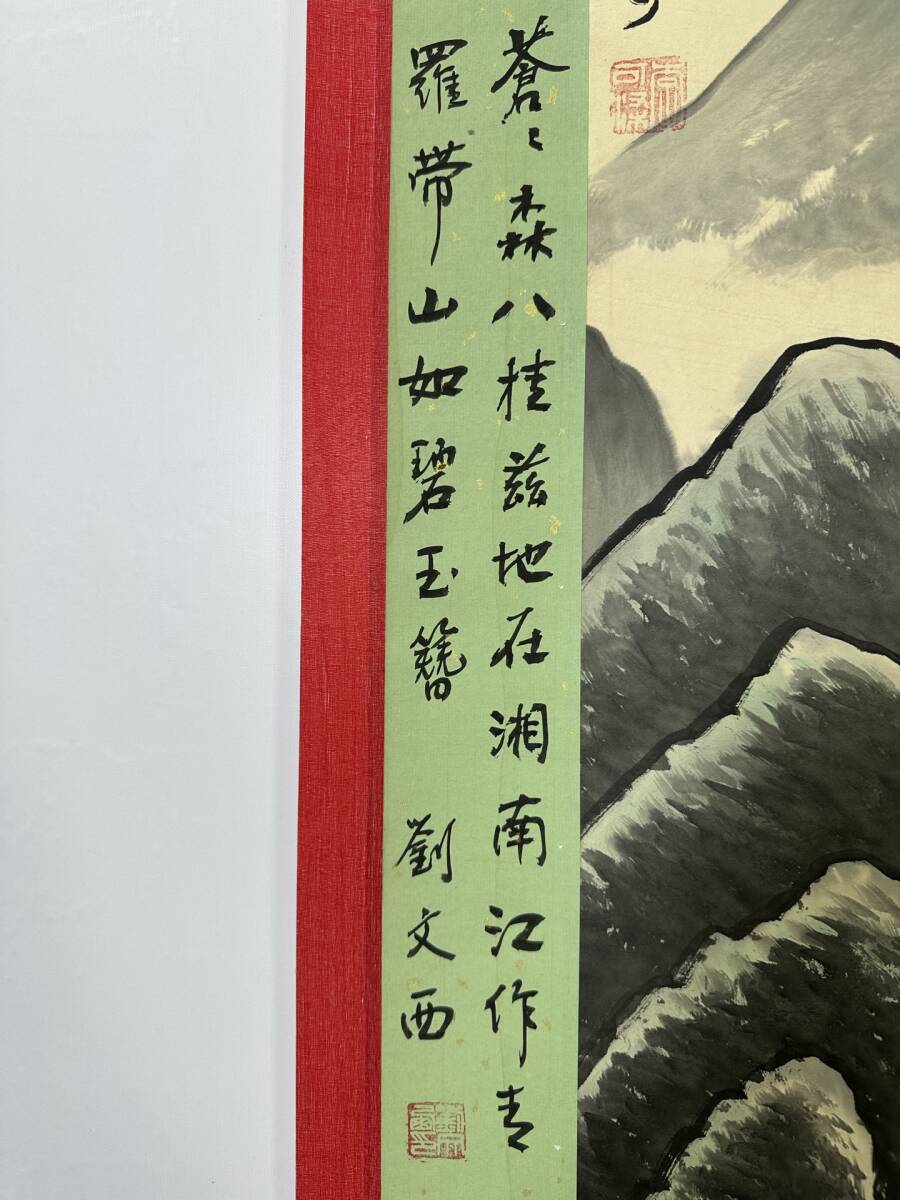 蒼々森八桂兹地在湘南江作青
羅帶山如碧玉簪
劉文西